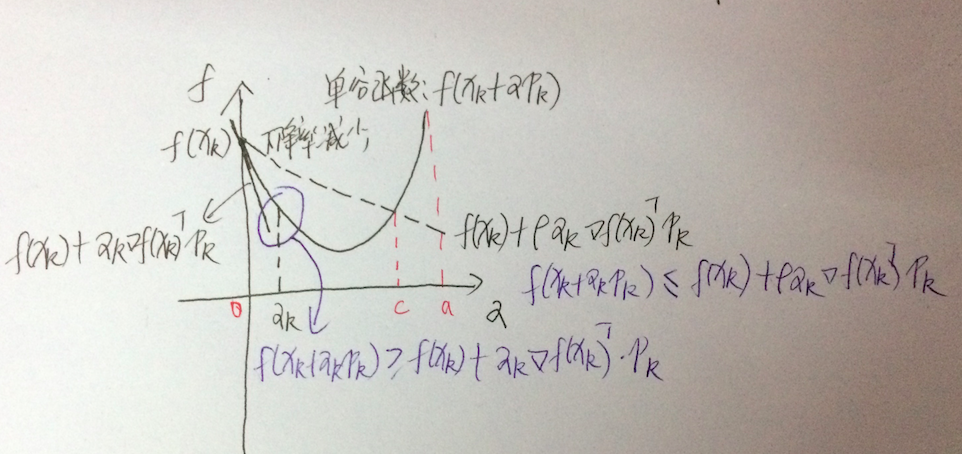 f
单谷函数: f(xₖ+αPₖ)
f(xₖ)
下降率减少
f(xₖ)+αₖ∇f(xₖ)ᵀPₖ
f(xₖ)+ραₖ∇f(xₖ)ᵀPₖ
f(xₖ+αₖPₖ) ≤ f(xₖ)+ραₖ∇f(xₖ)ᵀPₖ
0
αₖ
c
a
α
f(xₖ+αₖPₖ) ≥ f(xₖ)+αₖ∇f(xₖ)ᵀ·Pₖ